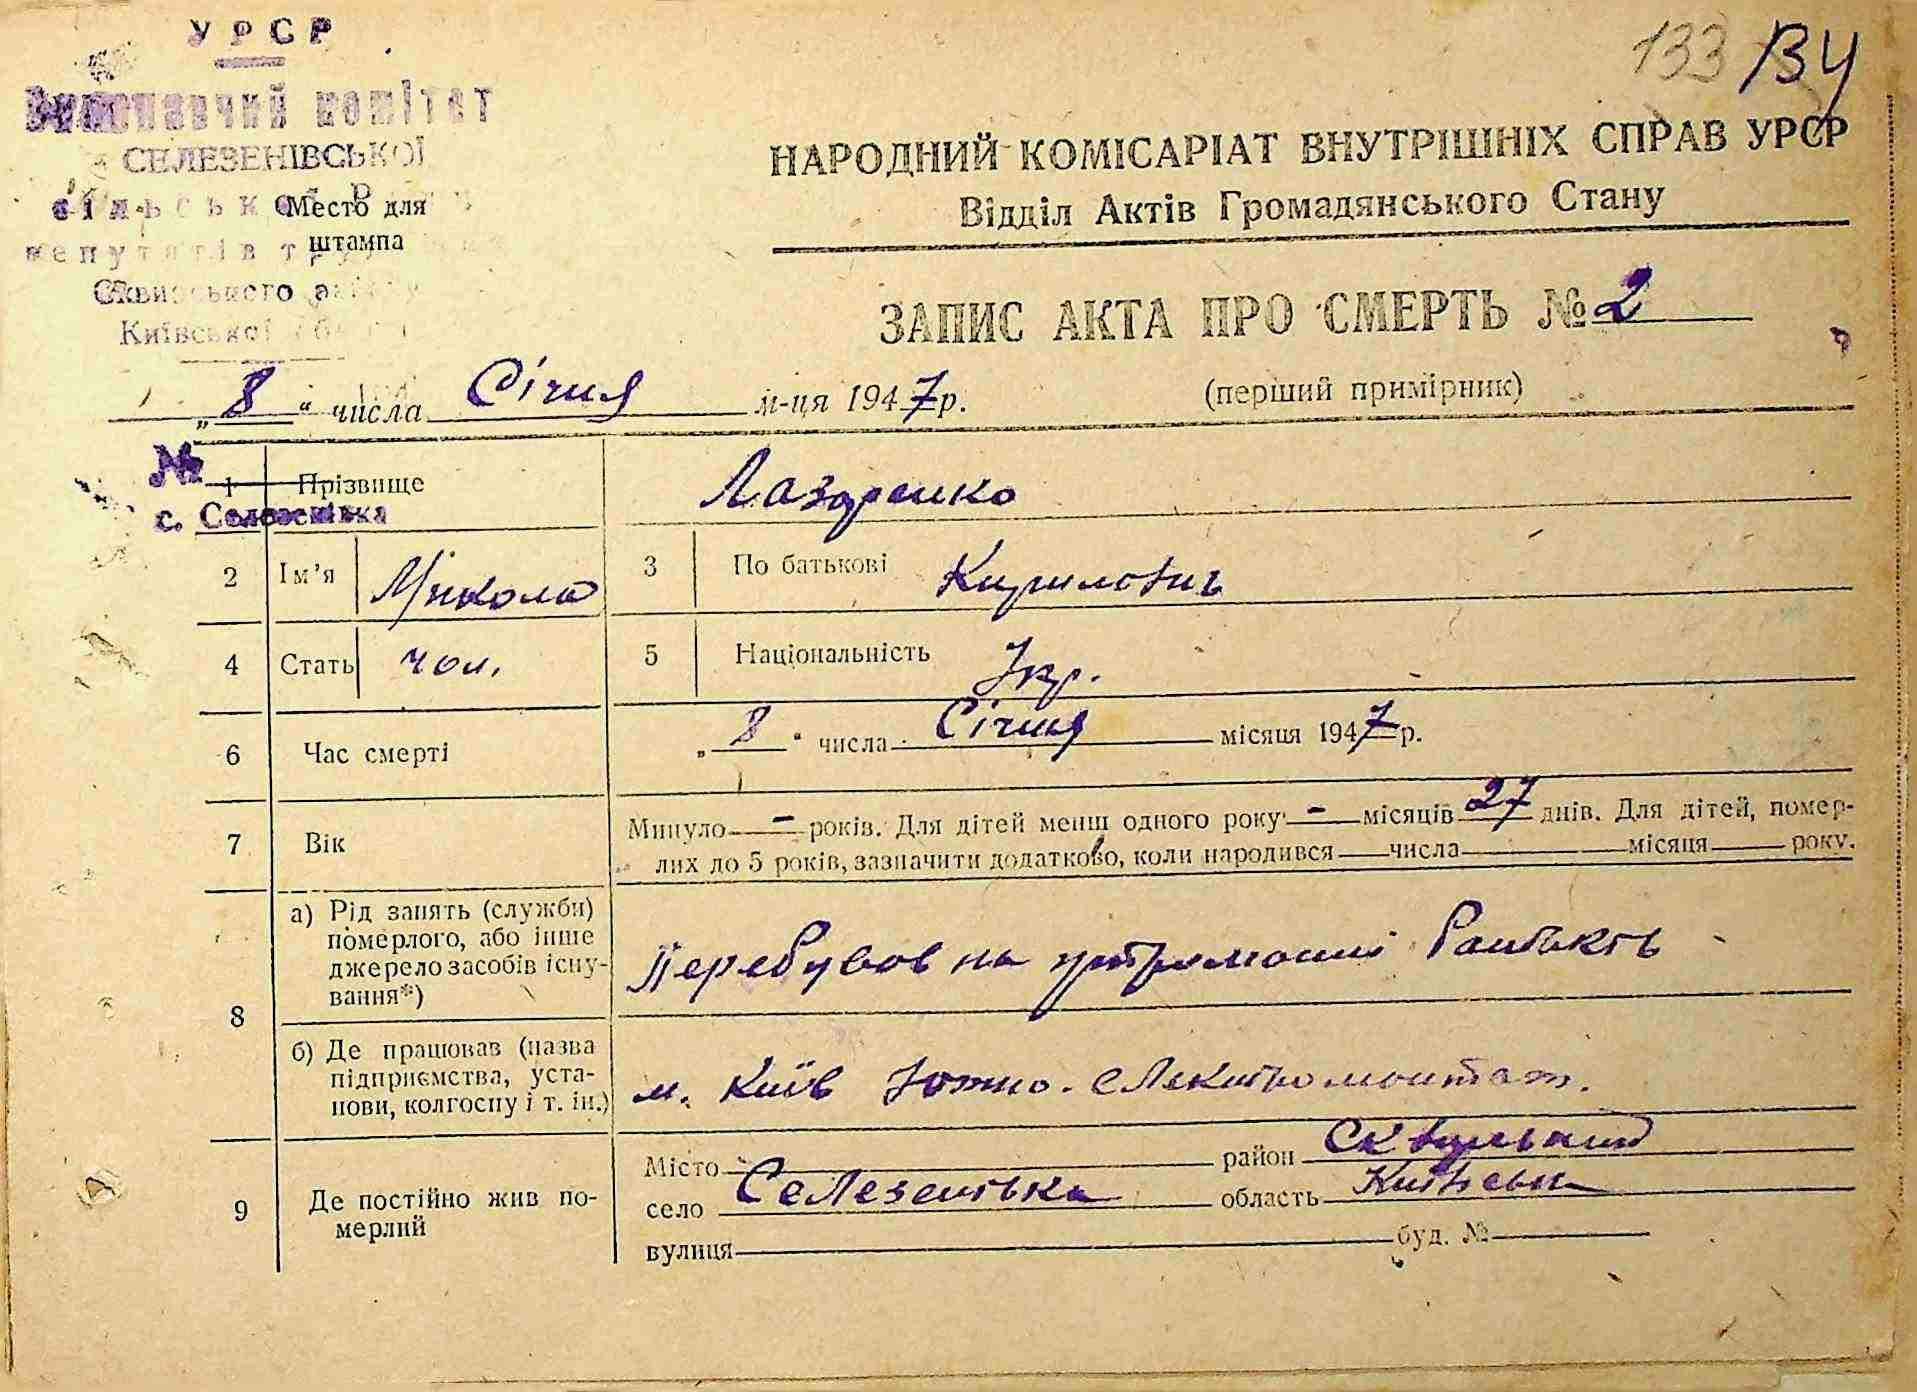 УРСР
Виконавчий комітет
СЕЛЕЗЕНІВСЬКОЇ
сільської
Место для
депутатів
штампа
Сквирського
Київської
133 134
НАРОДНИЙ КОМІСАРІАТ ВНУТРІШНІХ СПРАВ УРСР
Відділ Актів Громадянського Стану
ЗАПИС АКТА ПРО СМЕРТЬ № 2
„8“ числа Січня м-ця 1947 р.
(перший примірник)
№
1 Прізвище Лазаренко
с. Селезенівка
2 Ім'я Микола 3 По батькові Кирилович
4 Стать чол. 5 Національність Укр.
6 Час смерті „8“ числа Січня місяця 1947 р.
7 Вік Минуло - років. Для дітей менш одного року - місяців 27 днів. Для дітей, помер-
лих до 5 років, зазначити додатково, коли народився числа місяця року.
8 а) Рід занять (служби)
померлого, або інше
джерело засобів існу-
вання*)
Перебував на утриманні батьків
б) Де працював (назва
підприємства, уста-
нови, колгоспу і т. ін.)
м. Київ Южно-електромонтаж.
9 Де постійно жив по-
мерлий
Місто район Сквирський
село Селезенівка область Київськ
вулиця буд. №